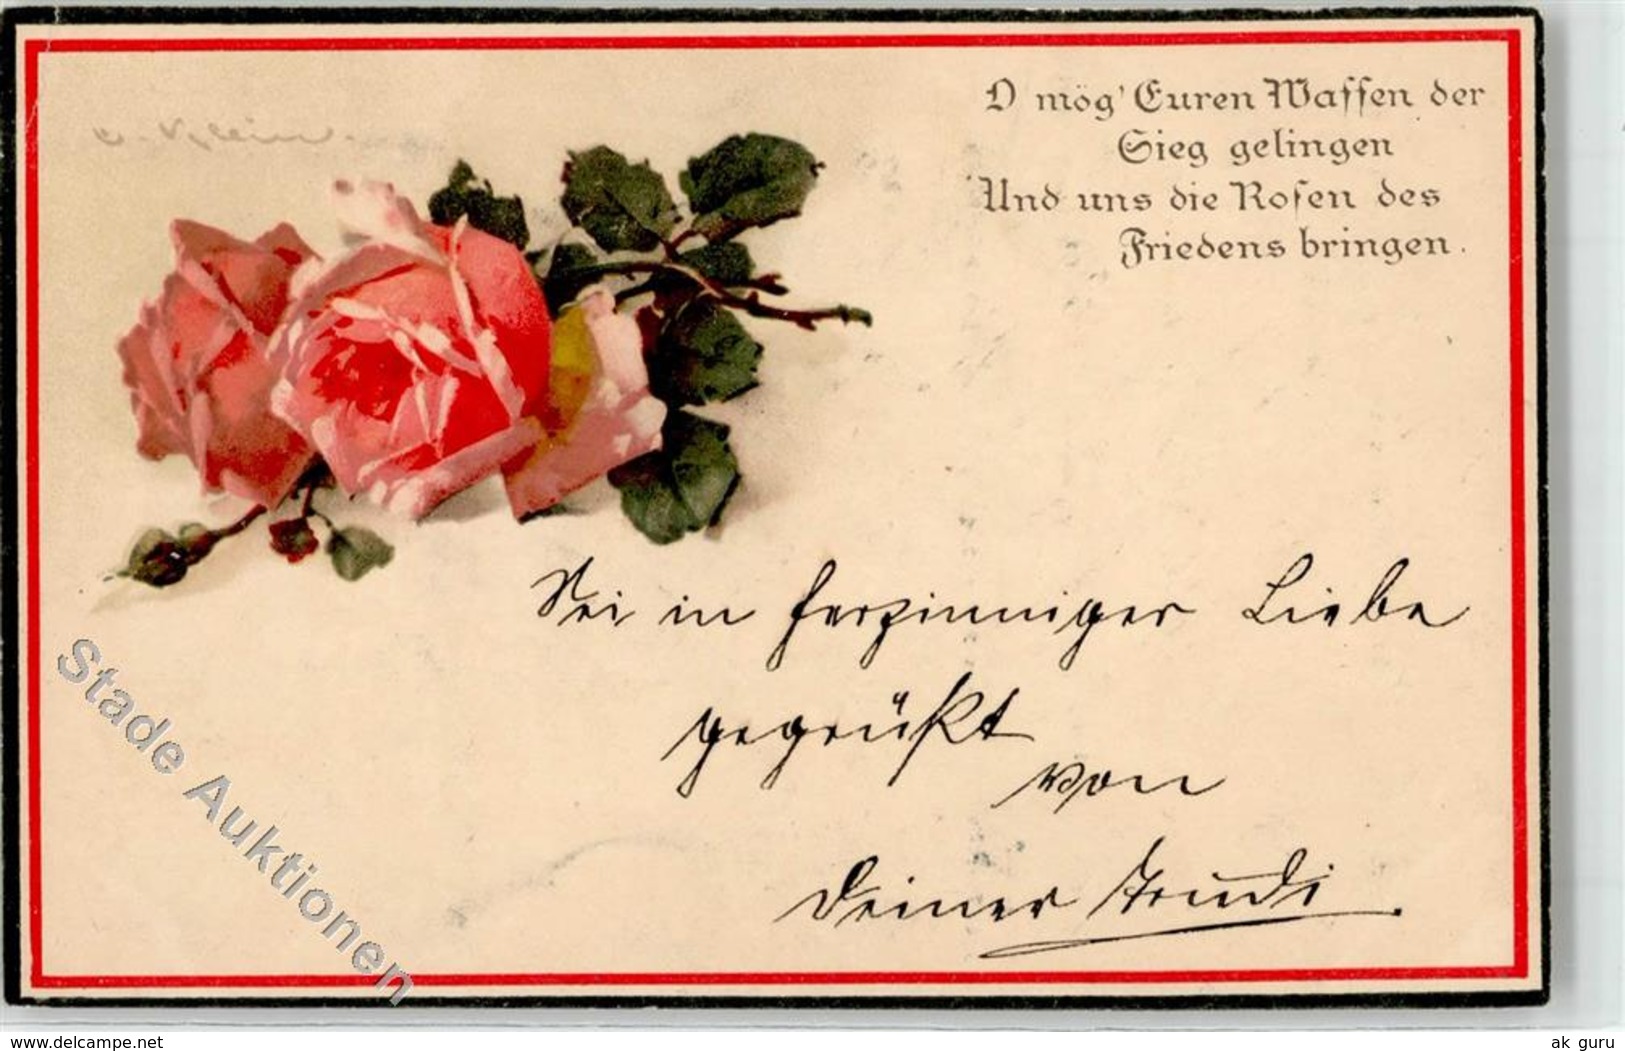 C. Klein.
O mög' Euren Waffen der
Sieg gelingen
Und uns die Rosen des
Friedens bringen.
Sei in herzinniger Liebe
gegrüßt
von
Deiner Trudi
Stade Auktionen
www.delcampe.net
ak guru